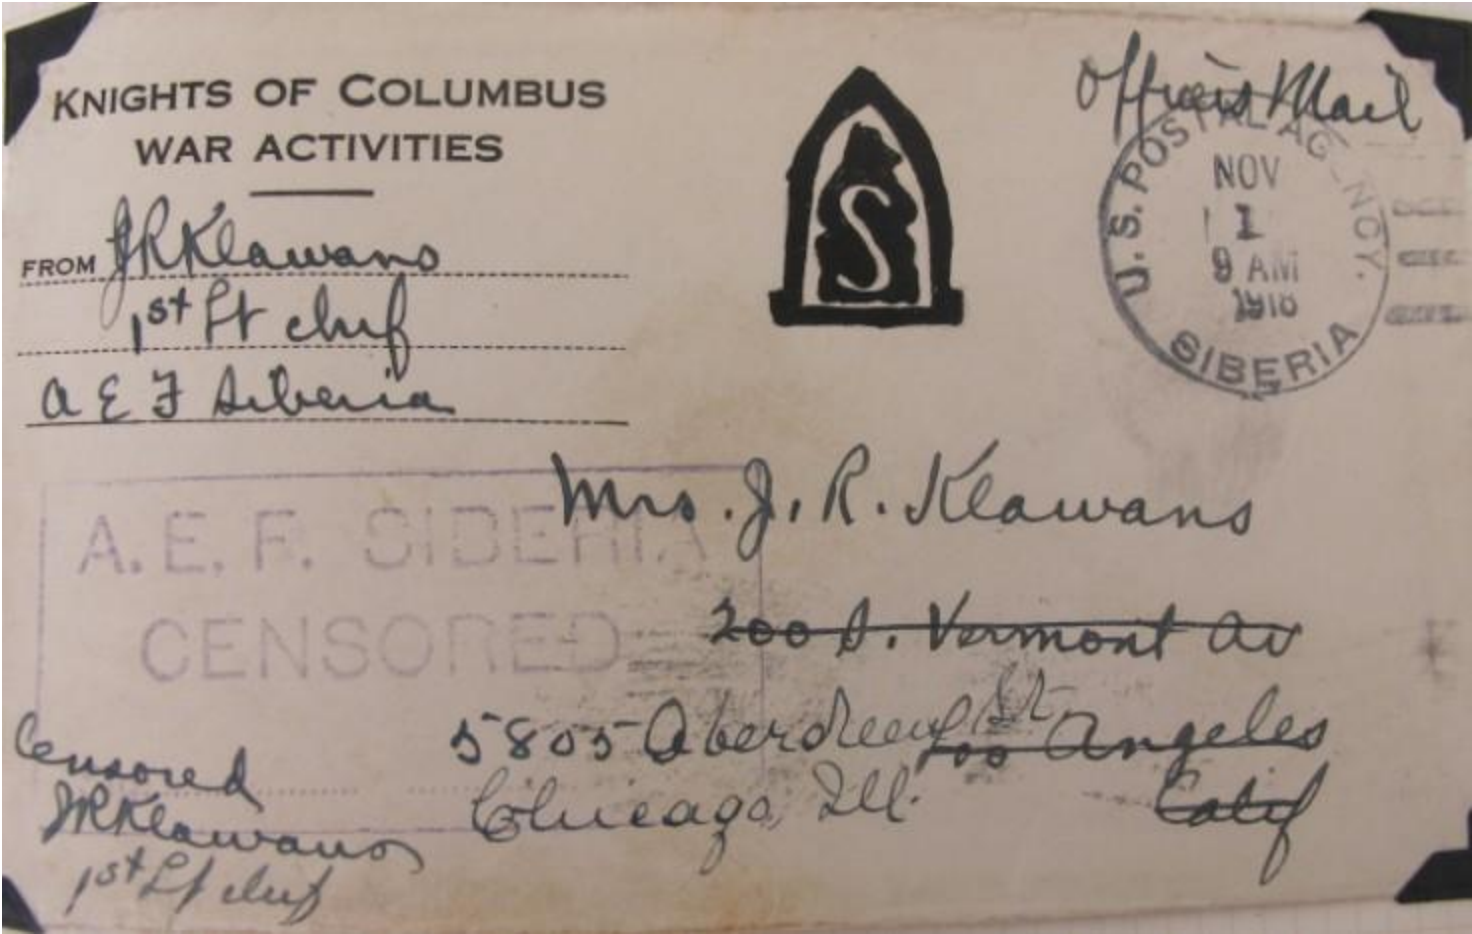 KNIGHTS OF COLUMBUS
WAR ACTIVITIES
FROM J R Klawans
1st Lt
A E F Siberia
S
Officers Mail
U. S. POSTAL AGENCY.
NOV
1
9 AM
1918
SIBERIA
A. E. F. SIBERIA
CENSORED
Mrs. J. R. Klawans
200 S. Vermont Av
Los Angeles
Calif
5805 Aberdeen St
Chicago, Ill.
Censored
J R Klawans
1st Lt